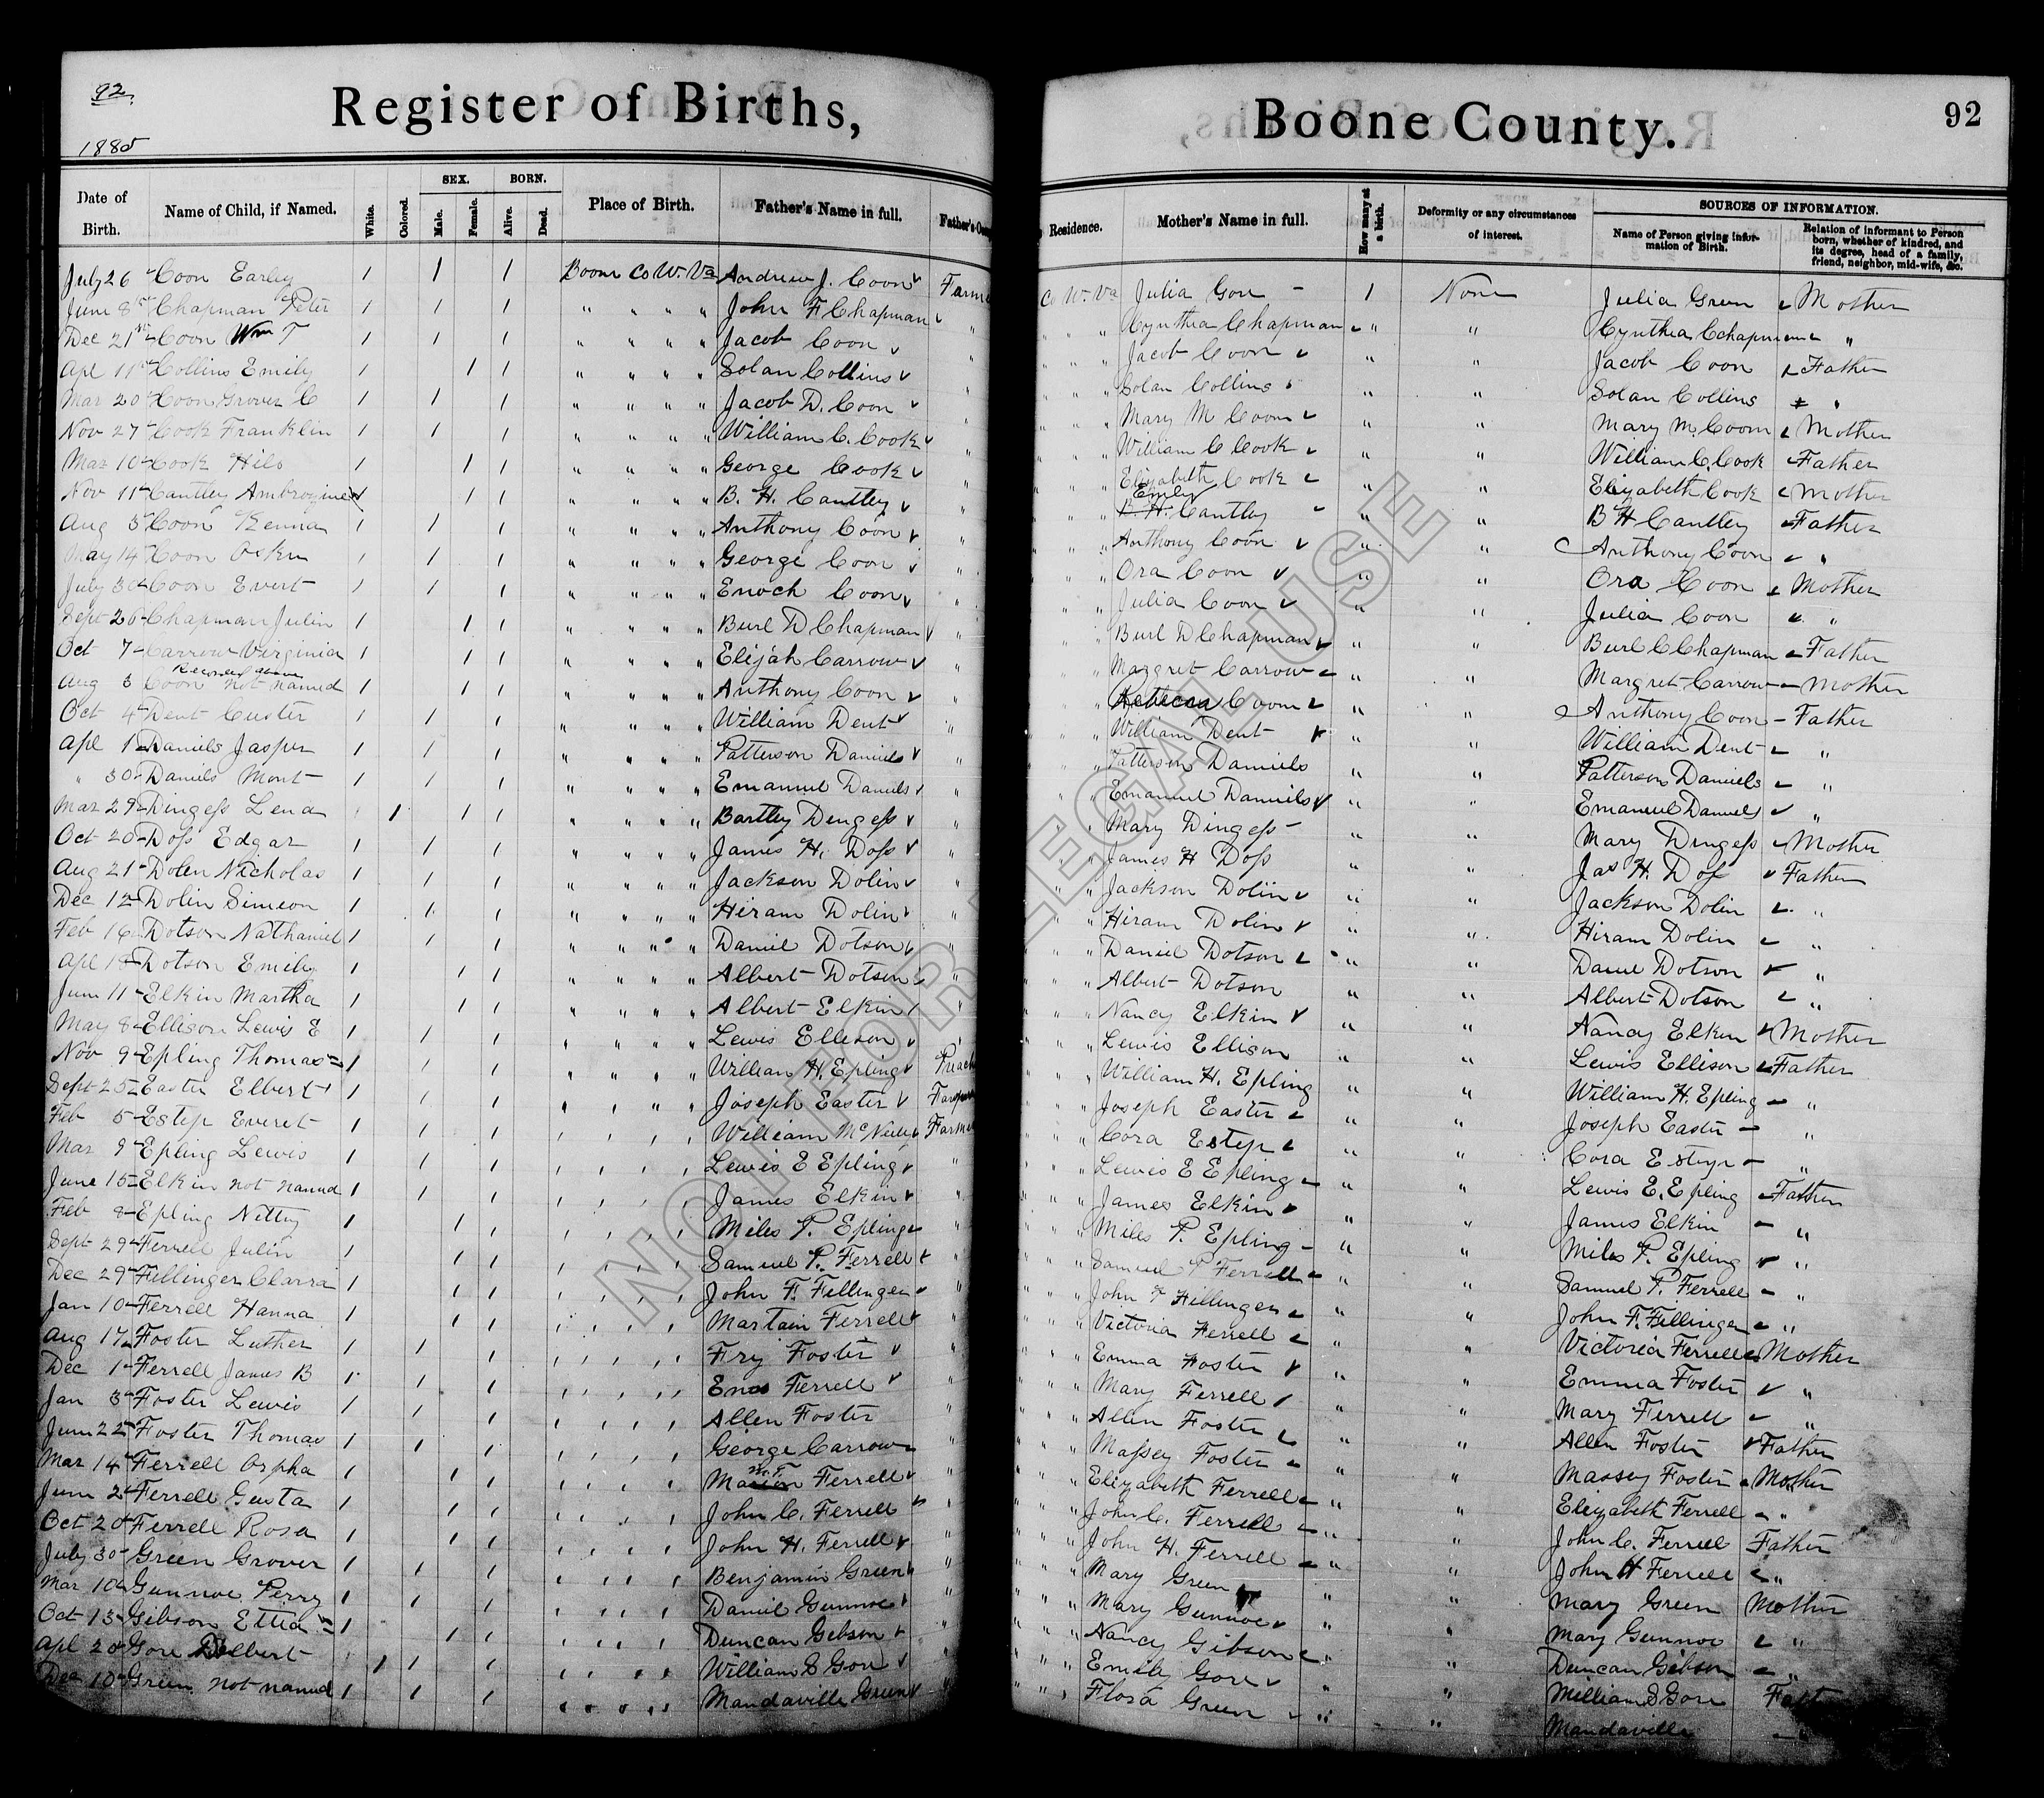 92.
Register of Births,
Boone County.
92
1885
Date of Birth.
Name of Child, if Named.
White.
Colored.
SEX.
Male.
Female.
BORN.
Alive.
Dead.
Place of Birth.
Father's Name in full.
Residence.
Mother's Name in full.
How many at a birth.
Deformity or any circumstances of interest.
SOURCES OF INFORMATION.
Name of Person giving information of Birth.
Relation of informant to Person born, whether of kindred, and its degree, head of a family, friend, neighbor, mid-wife, &c.
July 26 Coon Earley 1 1 1 Boone Co W. Va Andrew J. Coon Co W. Va Julia Gore 1 None Julia Green Mother
June 8 Chapman Peter 1 1 1 " " " " John F Chapman " " Cynthia Chapman " " Cynthia Chapman "
Dec 21 Coon Wm T 1 1 1 " " " " Jacob Coon " " Jacob Coon " " Jacob Coon Father
Apl 11 Collins Emily 1 1 1 " " " " Solan Collins " " Solan Collins " " Solan Collins "
Mar 20 Coon Grover C 1 1 1 " " " " Jacob D. Coon " " Mary M Coon " " Mary M. Coon Mother
Nov 27 Cook Franklin 1 1 1 " " " " William C. Cook " " William C Cook " " William C. Cook Father
Mar 10 Cook Hils 1 1 1 " " " " George Cook " " Elizabeth Cook " " Elizabeth Cook Mother
Nov 11 Cantley Ambrozine 1 1 1 " " " " B. H. Cantley " " Emley B H. Cantley " " B H Cantley Father
Aug 3 Coon Kenna 1 1 1 " " " " Anthony Coon " " Anthony Coon " " Anthony Coon "
May 14 Coon Osker 1 1 1 " " " " George Coon " " Ora Coon " " Ora Coon Mother
July 30 Coon Evert 1 1 1 " " " " Enoch Coon " " Julia Coon " " Julia Coon "
Sept 26 Chapman Julia 1 1 1 " " " " Burl D Chapman " " Burl D Chapman " " Burl C Chapman Father
Oct 7 Carrow Virginia 1 1 1 " " " " Elijah Carrow " " Margret Carrow " " Margret Carrow Mother
Recorded above
Aug 3 Coon not named 1 1 1 " " " " Anthony Coon " " Rebecca Coon " " Anthony Coon Father
Oct 4 Dent Custer 1 1 1 " " " " William Dent " " William Dent " " William Dent "
Apl 1 Daniels Jasper 1 1 1 " " " " Patterson Daniels " " Patterson Daniels " " Patterson Daniels "
" 30 Daniels Mont 1 1 1 " " " " Emanuel Daniels " " Emanuel Daniels " " Emanuel Daniels "
Mar 29 Dingess Lena 1 1 1 " " " " Bartley Dingess " " Mary Dingess " " Mary Dingess Mother
Oct 20 Doss Edgar 1 1 1 " " " " James H. Doss " " James H Doss " " Jas H. Dos Father
Aug 21 Dolen Nicholas 1 1 1 " " " " Jackson Dolin " " Jackson Dolin " " Jackson Dolin "
Dec 12 Dolin Simeon 1 1 1 " " " " Hiram Dolin " " Hiram Dolin " " Hiram Dolin "
Feb 16 Dotson Nathaniel 1 1 1 " " " " Daniel Dotson " " Daniel Dotson " " Daniel Dotson "
Apl 18 Dotson Emily 1 1 1 " " " " Albert Dotson " " Albert Dotson " " Albert Dotson "
June 11 Elkin Martha 1 1 1 " " " " Albert Elkin " " Nancy Elkin " " Nancy Elkin Mother
May 8 Ellison Lewis E 1 1 1 " " " " Lewis Ellison " " Lewis Ellison " " Lewis Ellison Father
Nov 9 Epling Thomas 1 1 1 " " " " William H. Epling " " William H. Epling " " William H. Epling "
Sept 25 Easter Elbert 1 1 1 " " " " Joseph Easter " " Joseph Easter " " Joseph Easter "
Feb 5 Estep Everet 1 1 1 " " " " William McNeely " " Cora Estep " " Cora Estep "
Mar 9 Epling Lewis 1 1 1 " " " " Lewis E Epling " " Lewis E Epling " " Lewis E. Epling Father
June 15 Elkin not named 1 1 1 " " " " James Elkin " " James Elkin " " James Elkin "
Feb 8 Epling Nitty 1 1 1 " " " " Miles P. Epling " " Miles P. Epling " " Miles P. Epling "
Sept 29 Ferrell Julia 1 1 1 " " " " Samuel P. Ferrell " " Samuel P Ferrell " " Samuel P. Ferrell "
Dec 29 Fillinger Clarra 1 1 1 " " " " John F. Fillinger " " John F Fillinger " " John F. Fillinger "
Jan 10 Ferrell Hanna 1 1 1 " " " " Martain Ferrell " " Victoria Ferrell " " Victoria Ferrell Mother
Aug 17 Foster Luther 1 1 1 " " " " Fry Foster " " Emma Foster " " Emma Foster "
Dec 1 Ferrell James B 1 1 1 " " " " Enos Ferrell " " Mary Ferrell " " Mary Ferrell "
Jan 3 Foster Lewis 1 1 1 " " " " Allen Foster " " Allen Foster " " Allen Foster Father
June 22 Foster Thomas 1 1 1 " " " " George Carrow " " Massey Foster " " Massey Foster Mother
Mar 14 Ferrell Orpha 1 1 1 " " " " Marion Ferrell " " Elizabeth Ferrell " " Elizabeth Ferrell "
June 2 Ferrell Gusta 1 1 1 " " " " John C. Ferrell " " John C. Ferrell " " John C. Ferrell Father
Oct 20 Ferrell Rosa 1 1 1 " " " " John H. Ferrell " " John H. Ferrell " " John H Ferrell "
July 30 Green Grover 1 1 1 " " " " Benjamin Green " " Mary Green " " Mary Green Mother
Mar 10 Gunnoe Perry 1 1 1 " " " " Daniel Gunnoe " " Mary Gunnoe " " Mary Gunnoe "
Oct 13 Gibson Etta 1 1 1 " " " " Duncan Gibson " " Nancy Gibson " " Duncan Gibson "
Apl 20 Gore Delbert 1 1 1 " " " " William S Gore " " Emily Gore " " William S Gore
Dec 10 Green not named 1 1 1 " " " " Mandaville Green " " Flora Green " " Mandaville "
NOT FOR LEGAL USE